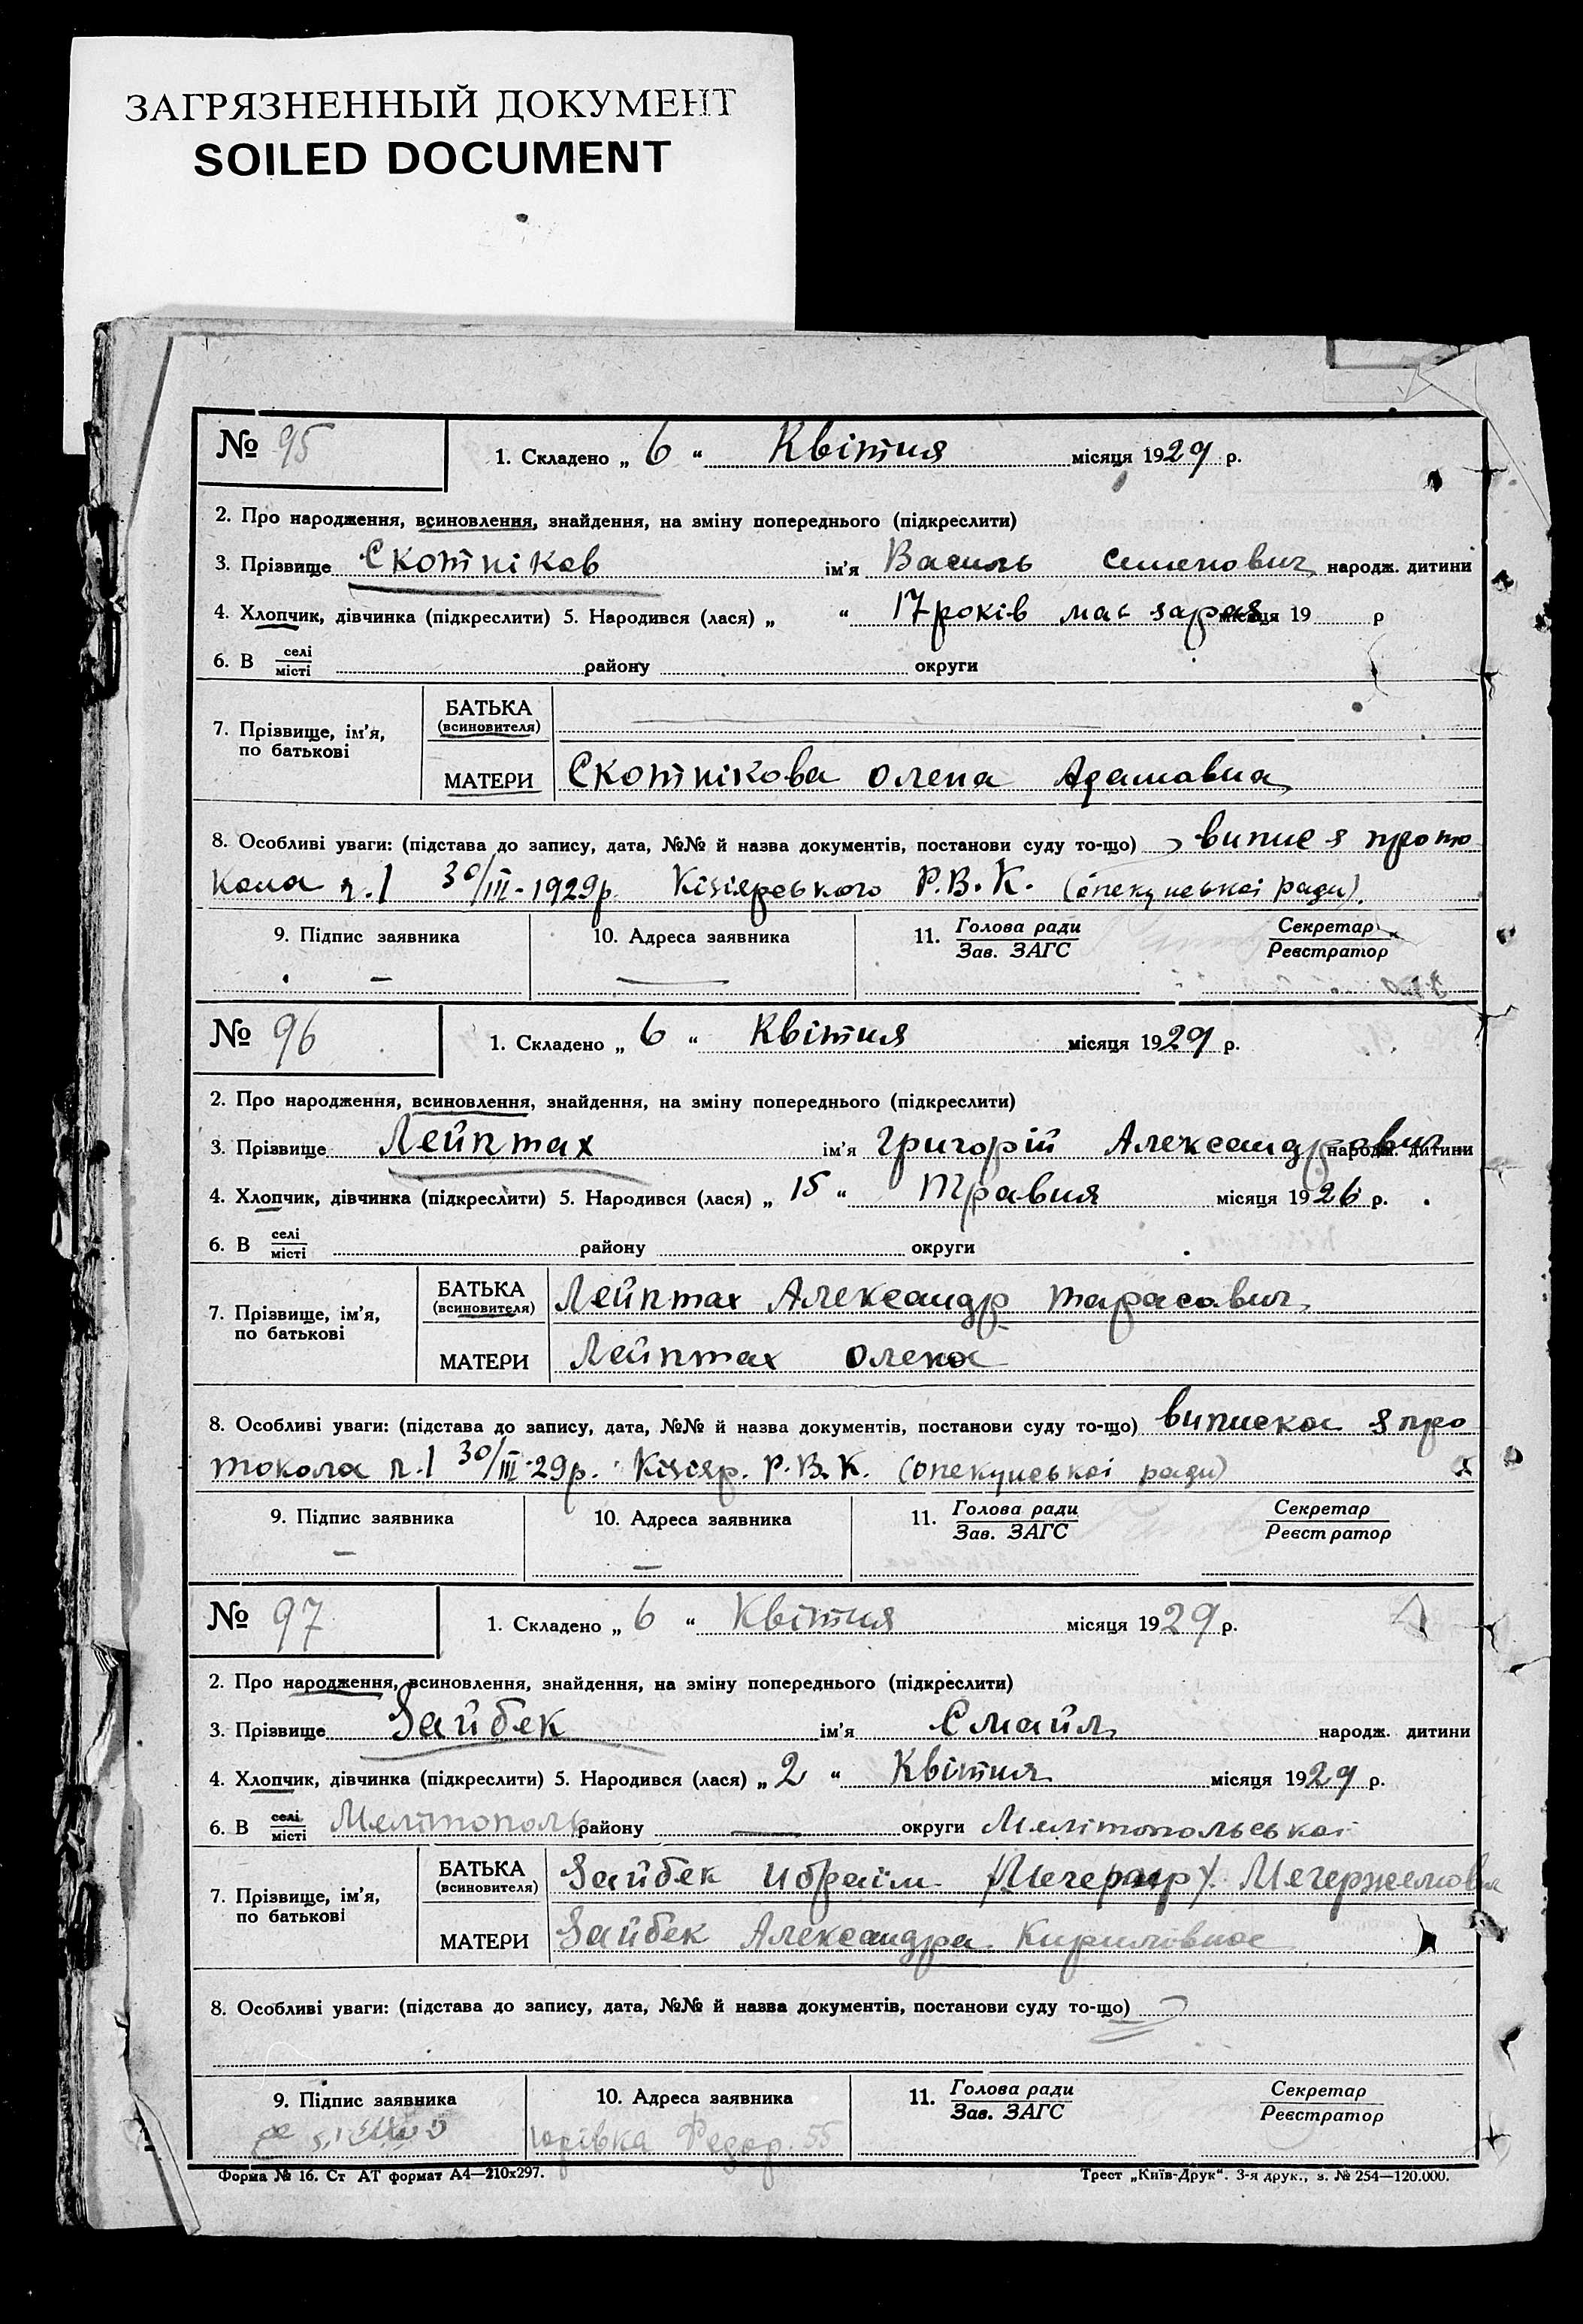 ЗАГРЯЗНЕННЫЙ ДОКУМЕНТ
SOILED DOCUMENT
№ 95
1. Складено „ 6 “ Квітня місяця 1929 р.
2. Про народження, всиновлення, знайдення, на зміну попереднього (підкреслити)
3. Прізвище Скотніков ім'я Василь Семенович народж. дитини
4. Хлопчик, дівчинка (підкреслити) 5. Народився (лася) „ “ 17 років має зараз місяця 19 р
6. В селі місті району округи
7. Прізвище, ім'я, по батькові
БАТЬКА (всиновителя)
МАТЕРИ Скотнікова Олена Адамовна
8. Особливі уваги: (підстава до запису, дата, №№ й назва документів, постанови суду то-що) випис з прото
кола ч.1 30/III-1929р. Кізіярського Р.В.К. (опекунськоі ради).
9. Підпис заявника 10. Адреса заявника 11. Голова ради Зав. ЗАГС Секретар Реєстратор
№ 96
1. Складено „ 6 “ Квітня місяця 1929 р.
2. Про народження, всиновлення, знайдення, на зміну попереднього (підкреслити)
3. Прізвище Лейптах ім'я Григорій Александрович народж. дитини
4. Хлопчик, дівчинка (підкреслити) 5. Народився (лася) „ 15 “ Травня місяця 1926 р.
6. В селі місті району округи
7. Прізвище, ім'я, по батькові
БАТЬКА (всиновителя) Лейптах Александр Тарасович
МАТЕРИ Лейптах Олена
8. Особливі уваги: (підстава до запису, дата, №№ й назва документів, постанови суду то-що) виписка з про
токола ч.1 30/III-29р. Кізіяр. Р.В.К. (опекунськоі ради)
9. Підпис заявника 10. Адреса заявника 11. Голова ради Зав. ЗАГС Секретар Реєстратор
№ 97
1. Складено „ 6 “ Квітня місяця 1929 р.
2. Про народження, всиновлення, знайдення, на зміну попереднього (підкреслити)
3. Прізвище Зайбек ім'я Смаїл народж. дитини
4. Хлопчик, дівчинка (підкреслити) 5. Народився (лася) „ 2 “ Квітня місяця 1929 р.
6. В селі місті Мелітополь району — округи Мелітопольськоі
7. Прізвище, ім'я, по батькові
БАТЬКА (всиновителя) Зайбек Ибраїм
МАТЕРИ Зайбек Александра Кириловна
8. Особливі уваги: (підстава до запису, дата, №№ й назва документів, постанови суду то-що)
9. Підпис заявника 10. Адреса заявника 11. Голова ради Зав. ЗАГС Секретар Реєстратор
55
Форма № 16. Ст АТ формат А4—210х297.
Трест „Київ-Друк“. 3-я друк., з. № 254—120.000.